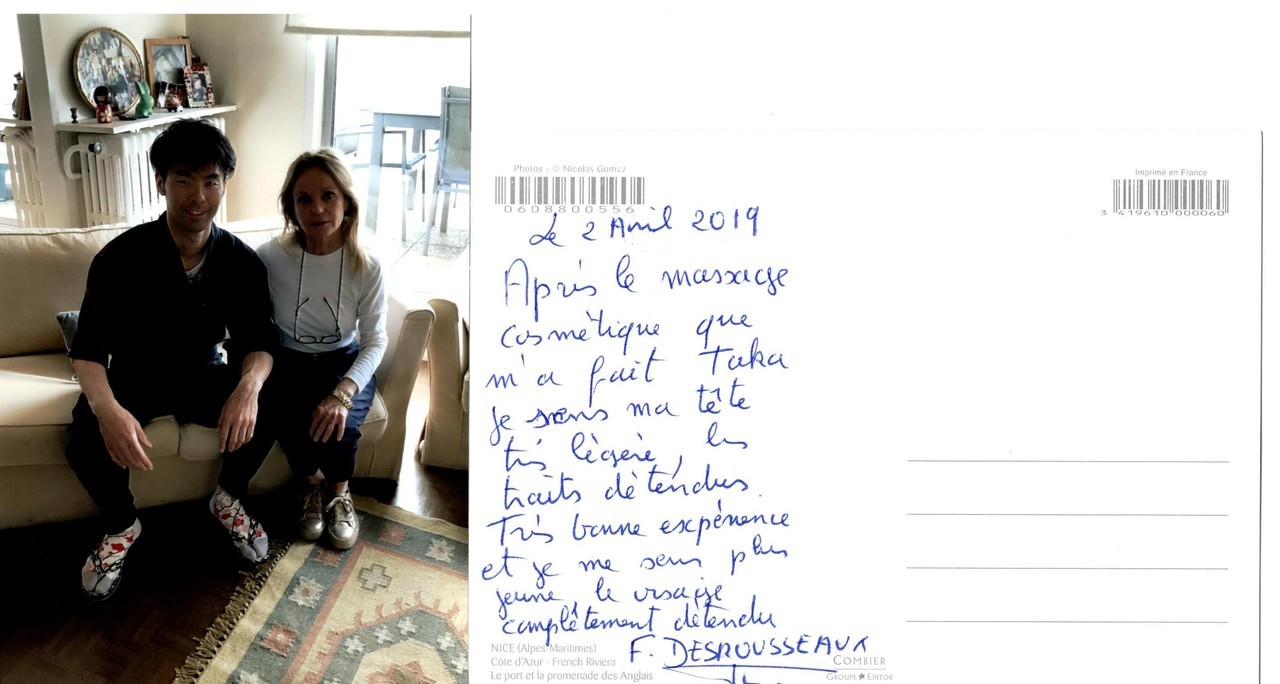 Photos : © Nicolas Gomez
0608800556
Imprimé en France
3 419610 000060
Le 2 Avril 2019
Après le massage
cosmétique que
m'a fait Taka
Je sens ma tête
très légère, les
traits détendus.
Très bonne expérience
et je me sens plus
jeune le visage
complètement détendu
F. DESROUSSEAUX
NICE (Alpes-Maritimes)
Côte d'Azur - French Riviera
Le port et la promenade des Anglais
COMBIER
GROUPE EDITOR